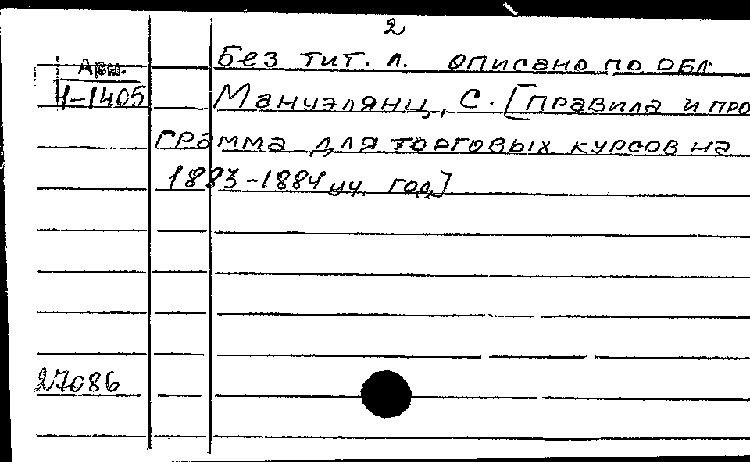 2
Без тит. л. описано по обл
Арм.
1-1405
Мануэлянц, С. [Правила и про
грамма для торговых курсов на
1883-1884 уч. год]
27086